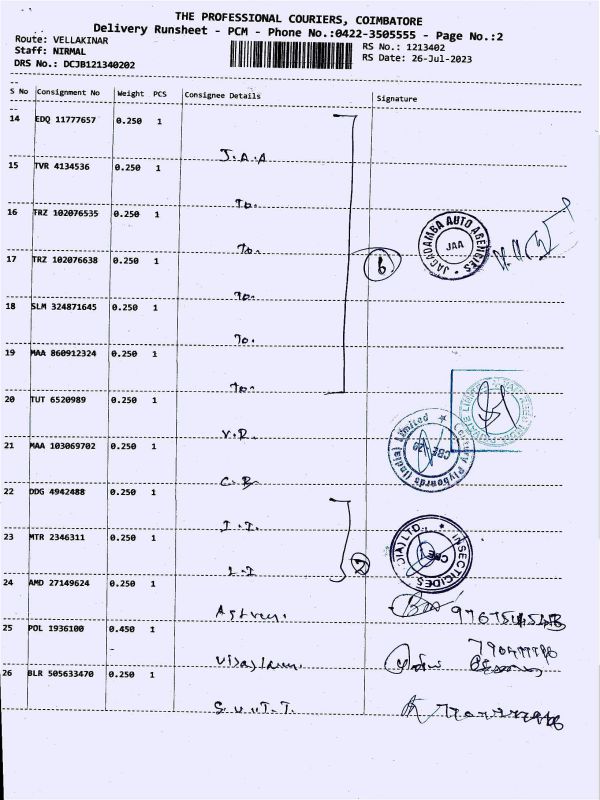 THE PROFESSIONAL COURIERS, COIMBATORE
Delivery Runsheet - PCM - Phone No.:0422-3505555 - Page No.:2
Route: VELLAKINAR
RS No.: 1213402
Staff: NIRMAL
RS Date: 26-Jul-2023
DRS No.: DCJB121340202
S No Consignment No Weight PCS Consignee Details Signature
14 EDQ 11777657 0.250 1
J.A.A
15 TVR 4134536 0.250 1
To.
16 TRZ 102076535 0.250 1
To.
JAGADAMBA AUTO AGENCIES
JAA
17 TRZ 102076638 0.250 1
To.
6
18 SLM 324871645 0.250 1
To.
19 MAA 860912324 0.250 1
To.
20 TUT 6520989 0.250 1
V.R.
Century Plyboards (India) Limited
CBE
21 MAA 103069702 0.250 1
C.B
22 DDG 4942488 0.250 1
I.I.
23 MTR 2346311 0.250 1
I.I
2
INSECTICIDES (INDIA) LTD.,
CBE
24 AMD 27149624 0.250 1
25 POL 1936100 0.450 1
-
26 BLR 505633470 0.250 1